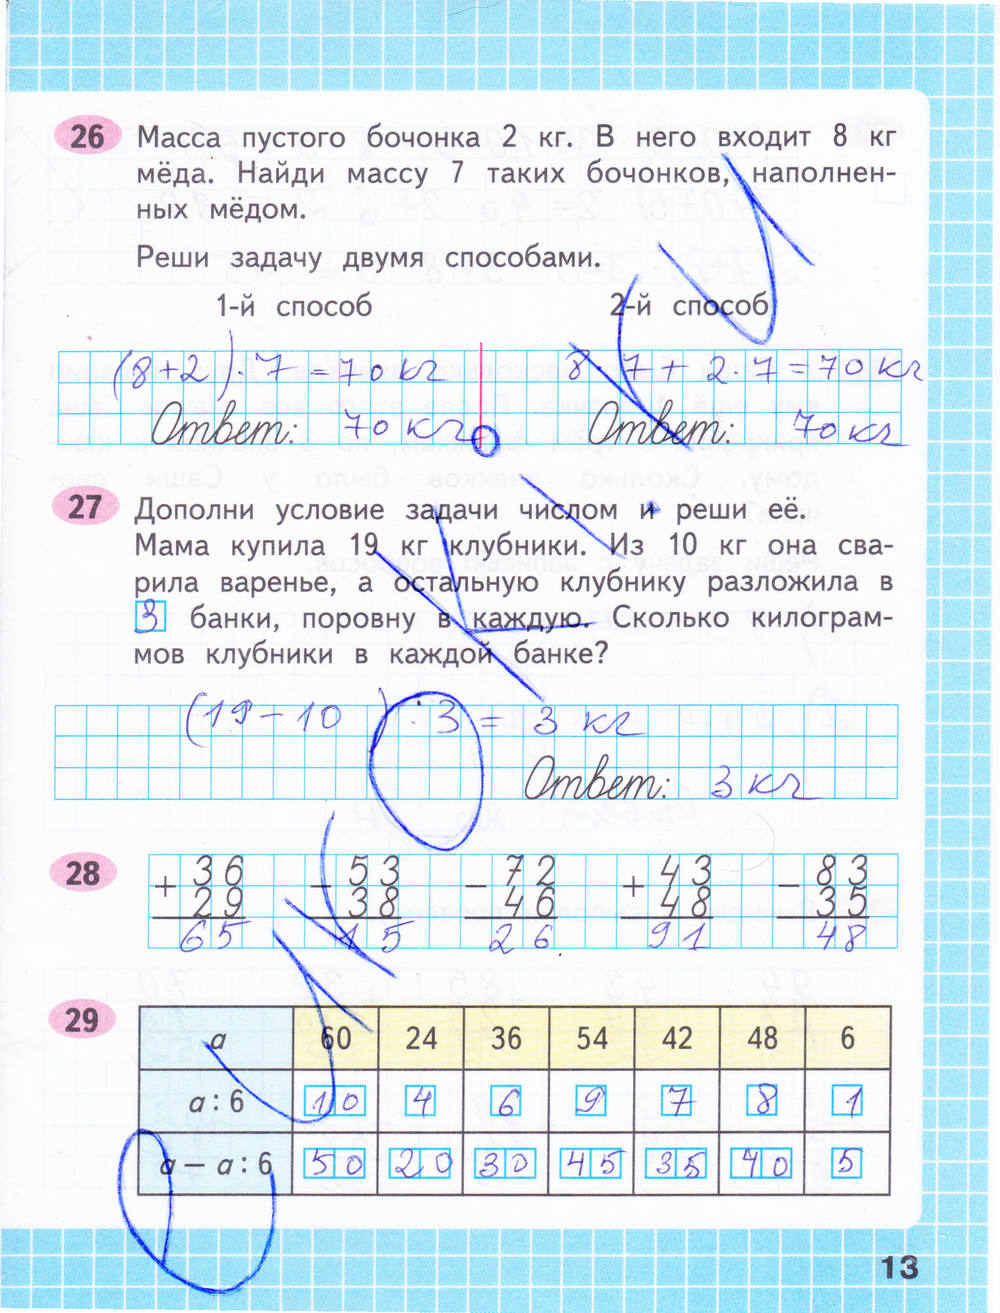 26 Масса пустого бочонка 2 кг. В него входит 8 кг
мёда. Найди массу 7 таких бочонков, наполнен-
ных мёдом.
Реши задачу двумя способами.
1-й способ 2-й способ
(8+2)·7=70 кг 8·7+2·7=70 кг
Ответ: 70 кг Ответ: 70 кг
27 Дополни условие задачи числом и реши её.
Мама купила 19 кг клубники. Из 10 кг она сва-
рила варенье, а остальную клубнику разложила в
3 банки, поровну в каждую. Сколько килограм-
мов клубники в каждой банке?
(19-10):3=3 кг
Ответ: 3 кг
28
+ 36 − 53 − 72 + 43 − 83
29 38 46 48 35
65 15 26 91 48
29
a 60 24 36 54 42 48 6
a : 6 10 4 6 9 7 8 1
a − a : 6 50 20 30 45 35 40 5
13